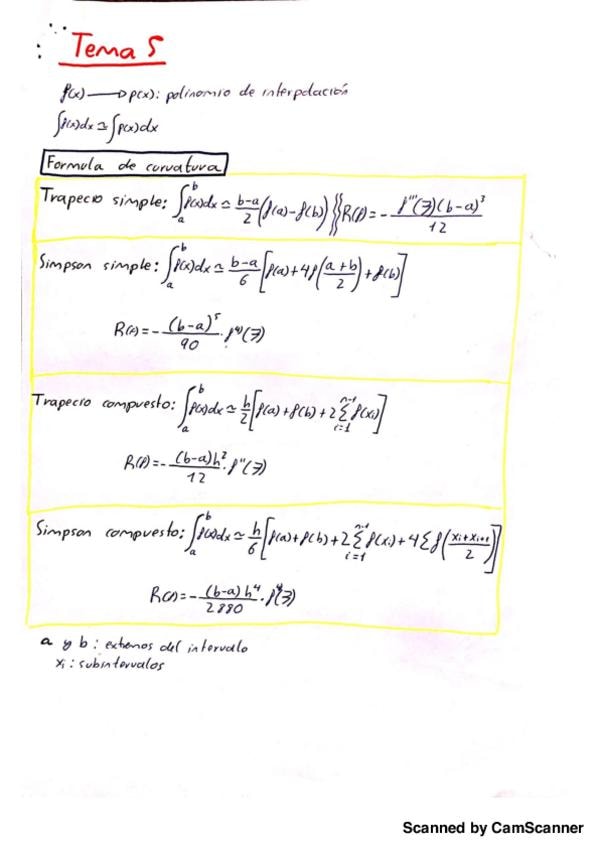 Tema 5
f(x) → p(x): polinomio de interpolación
∫f(x)dx ≃ ∫p(x)dx
Formula de curvatura
Trapecio simple: ∫_a^b f(x)dx ≃ (b-a)/2 (f(a)-f(b)) }} R(f) = - f'''(ξ)(b-a)^3 / 12
Simpson simple: ∫_a^b f(x)dx ≃ (b-a)/6 [f(a)+4f((a+b)/2)+f(b)]
R(f) = - (b-a)^5 / 90 · f^(4)(ξ)
Trapecio compuesto: ∫_a^b f(x)dx ≃ h/2 [f(a)+f(b)+2 Σ_{i=1}^{n-1} f(xi)]
R(f) = - (b-a)h^2 / 12 · f''(ξ)
Simpson compuesto: ∫_a^b f(x)dx ≃ h/6 [f(a)+f(b)+2 Σ_{i=1}^{n-1} f(xi)+4 Σ f((xi+xi+1)/2)]
R(f) = - (b-a)h^4 / 2880 · f^4(ξ)
a y b: extremos del intervalo
xi: subintervalos
Scanned by CamScanner